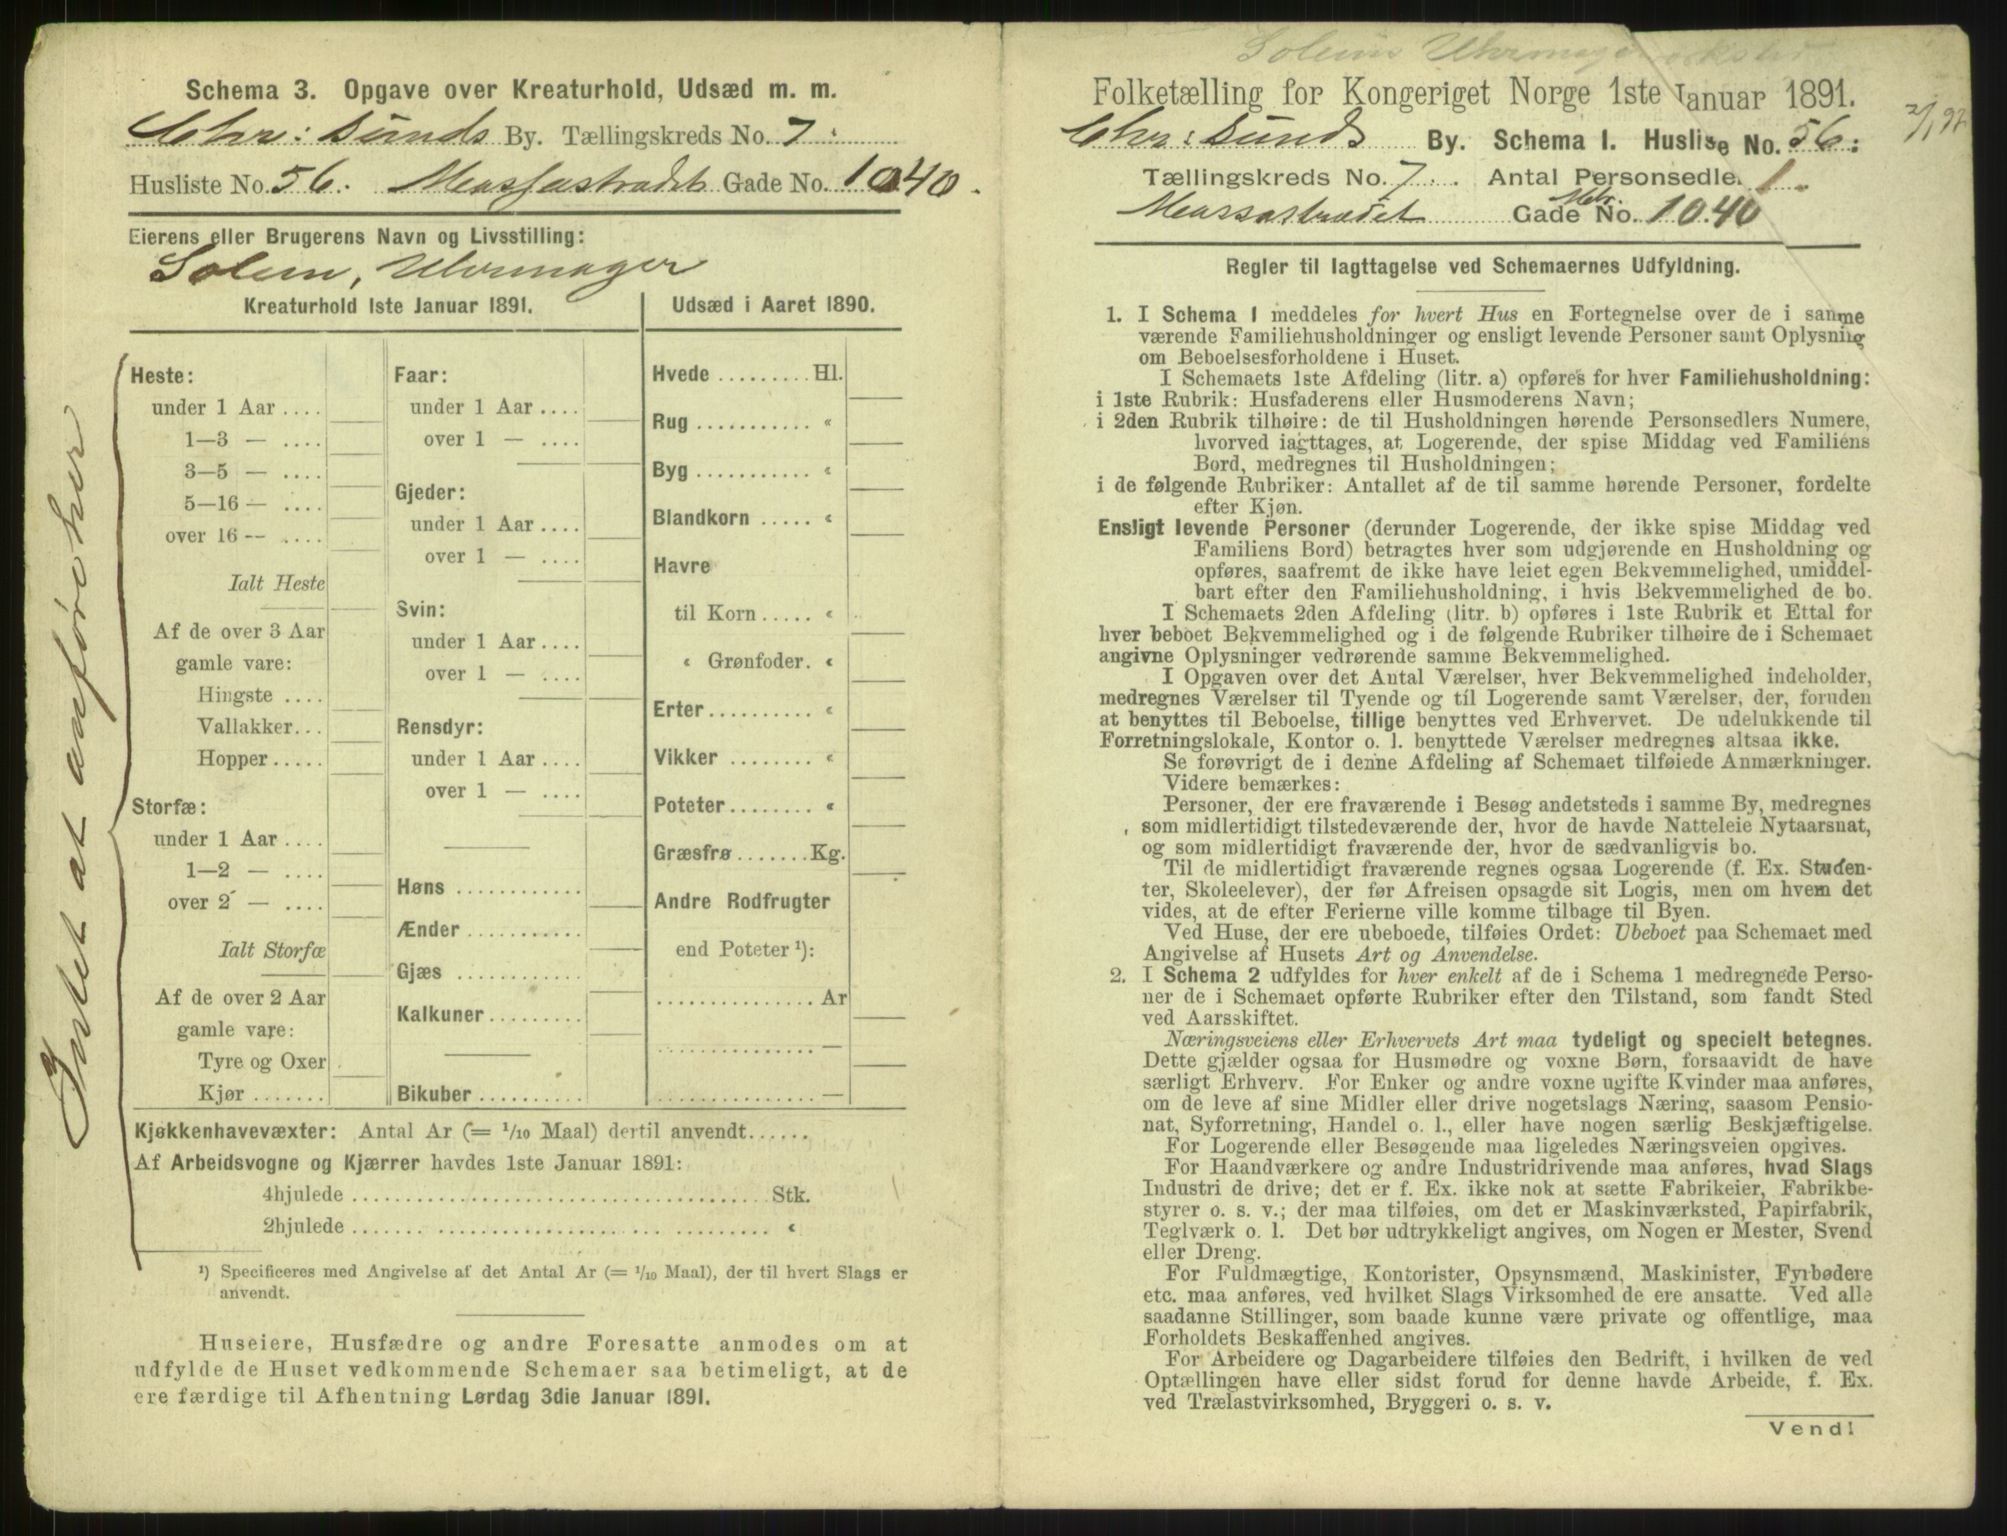 Schema 3. Opgave over Kreaturhold, Udsæd m. m.
Chr: sunds By. Tællingskreds No. 7.
Husliste No. 56. Gade No. 1040.
Eierens eller Brugerens Navn og Livsstilling:
Solem, Uhrmager
Kreaturhold 1ste Januar 1891.
Heste:
under 1 Aar ....
1—3 — ....
3—5 — ....
5—16 — ....
over 16 — ....
Ialt Heste
Af de over 3 Aar
gamle vare:
Hingste ....
Vallakker...
Hopper .....
Storfæ:
under 1 Aar ....
1—2 — ....
over 2 — ....
Ialt Storfæ
Af de over 2 Aar
gamle vare:
Tyre og Oxer
Kjør .......
Faar:
under 1 Aar ....
over 1 — ....
Gjeder:
under 1 Aar ....
over 1 — ....
Svin:
under 1 Aar ....
over 1 — ....
Rensdyr:
under 1 Aar ....
over 1 — ....
Høns ............
Ænder ...........
Gjæs ............
Kalkuner.........
Bikuber ..........
Udsæd i Aaret 1890.
Hvede ......... Hl.
Rug ........... "
Byg ........... "
Blandkorn ..... "
Havre
til Korn ..... "
" Grønfoder. "
Erter.......... "
Vikker ........ "
Poteter........ "
Græsfrø ....... Kg.
Andre Rodfrugter
end Poteter ¹):
............... Ar
............... —
............... —
Intet at anføre her
Kjøkkenhavevæxter: Antal Ar (= 1/10 Maal) dertil anvendt......
Af Arbeidsvogne og Kjærrer havdes 1ste Januar 1891:
4hjulede ........................................ Stk.
2hjulede ........................................ "
¹) Specificeres med Angivelse af det Antal Ar (= 1/10 Maal), der til hvert Slags er
anvendt.
Huseiere, Husfædre og andre Foresatte anmodes om at
udfylde de Huset vedkommende Schemaer saa betimeligt, at de
ere færdige til Afhentning Lørdag 3die Januar 1891.
Solems Uhrmager
Folketælling for Kongeriget Norge 1ste Januar 1891.
Chr: sunds By. Schema I. Husliste No. 56:
Tællingskreds No. 7. Antal Personsedler 1.
Gade No. 1040
Regler til Iagttagelse ved Schemaernes Udfyldning.
1. I Schema 1 meddeles for hvert Hus en Fortegnelse over de i samme
værende Familiehusholdninger og ensligt levende Personer samt Oplysning
om Beboelsesforholdene i Huset.
I Schemaets 1ste Afdeling (litr. a) opføres for hver Familiehusholdning:
i 1ste Rubrik: Husfaderens eller Husmoderens Navn;
i 2den Rubrik tilhøire: de til Husholdningen hørende Personsedlers Numere,
hvorved iagttages, at Logerende, der spise Middag ved Familiens
Bord, medregnes til Husholdningen;
i de følgende Rubriker: Antallet af de til samme hørende Personer, fordelte
efter Kjøn.
Ensligt levende Personer (derunder Logerende, der ikke spise Middag ved
Familiens Bord) betragtes hver som udgjørende en Husholdning og
opføres, saafremt de ikke have leiet egen Bekvemmelighed, umiddel-
bart efter den Familiehusholdning, i hvis Bekvemmelighed de bo.
I Schemaets 2den Afdeling (litr. b) opføres i 1ste Rubrik et Ettal for
hver beboet Bekvemmelighed og i de følgende Rubriker tilhøire de i Schemaet
angivne Oplysninger vedrørende samme Bekvemmelighed.
I Opgaven over det Antal Værelser, hver Bekvemmelighed indeholder,
medregnes Værelser til Tyende og til Logerende samt Værelser, der, foruden
at benyttes til Beboelse, tillige benyttes ved Erhvervet. De udelukkende til
Forretningslokale, Kontor o. l. benyttede Værelser medregnes altsaa ikke.
Se forøvrigt de i denne Afdeling af Schemaet tilføiede Anmærkninger.
Videre bemærkes:
Personer, der ere fraværende i Besøg andetsteds i samme By, medregnes
som midlertidigt tilstedeværende der, hvor de havde Natteleie Nytaarsnat,
og som midlertidigt fraværende der, hvor de sædvanligvis bo.
Til de midlertidigt fraværende regnes ogsaa Logerende (f. Ex. Studen-
ter, Skoleelever), der før Afreisen opsagde sit Logis, men om hvem det
vides, at de efter Ferierne ville komme tilbage til Byen.
Ved Huse, der ere ubeboede, tilføies Ordet: Ubeboet paa Schemaet med
Angivelse af Husets Art og Anvendelse.
2. I Schema 2 udfyldes for hver enkelt af de i Schema 1 medregnede Perso-
ner de i Schemaet opførte Rubriker efter den Tilstand, som fandt Sted
ved Aarsskiftet.
Næringsveiens eller Erhvervets Art maa tydeligt og specielt betegnes.
Dette gjælder ogsaa for Husmødre og voxne Børn, forsaavidt de have
særligt Erhverv. For Enker og andre voxne ugifte Kvinder maa anføres,
om de leve af sine Midler eller drive nogetslags Næring, saasom Pensio-
nat, Syforretning, Handel o. l., eller have nogen særlig Beskjæftigelse.
For Logerende eller Besøgende maa ligeledes Næringsveien opgives.
For Haandværkere og andre Industridrivende maa anføres, hvad Slags
Industri de drive; det er f. Ex. ikke nok at sætte Fabrikeier, Fabrikbe-
styrer o. s. v.; der maa tilføies, om det er Maskinværksted, Papirfabrik,
Teglværk o. l. Det bør udtrykkeligt angives, om Nogen er Mester, Svend
eller Dreng.
For Fuldmægtige, Kontorister, Opsynsmænd, Maskinister, Fyrbødere
etc. maa anføres, ved hvilket Slags Virksomhed de ere ansatte. Ved alle
saadanne Stillinger, som baade kunne være private og offentlige, maa
Forholdets Beskaffenhed angives.
For Arbeidere og Dagarbeidere tilføies den Bedrift, i hvilken de ved
Optællingen have eller sidst forud for denne havde Arbeide, f. Ex.
ved Trælastvirksomhed, Bryggeri o. s. v.
Vend!